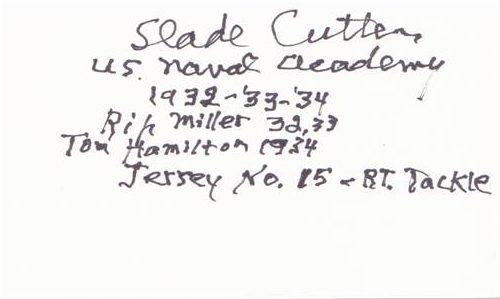 Slade Cutter,
U.S. Naval Academy
1932-'33-'34
Rip Miller 32,33
Tom Hamilton 1934
Jersey No. 15 - RT. Tackle